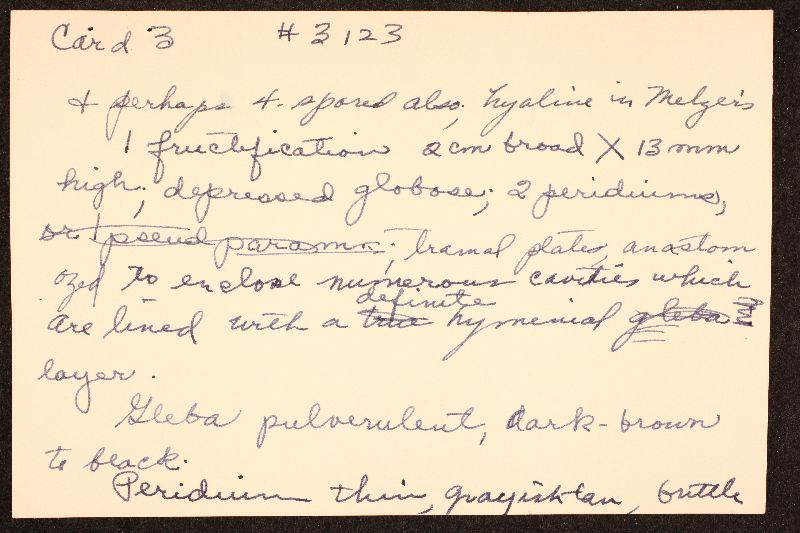 Card 3 # 3123
& perhaps 4 spored also, hyaline in Melzer's
1 fructification 2cm broad X 13 mm
high; depressed globose; 2 peridiums,
or 1 pseud param; tramal plates, anastom
ozed to enclose numerous cavities which
definite
are lined with a true hymenial gleba
layer.
Gleba pulverulent, dark-brown
to black.
Peridium thin, grayish tan, brittle